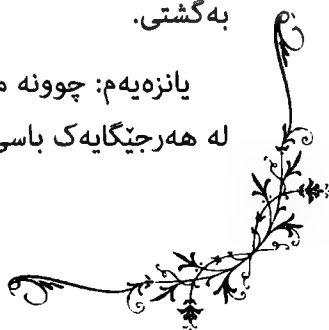 بەگشتی.
یانزەیەم: چوونە
لە هەرجێگایەک باسی